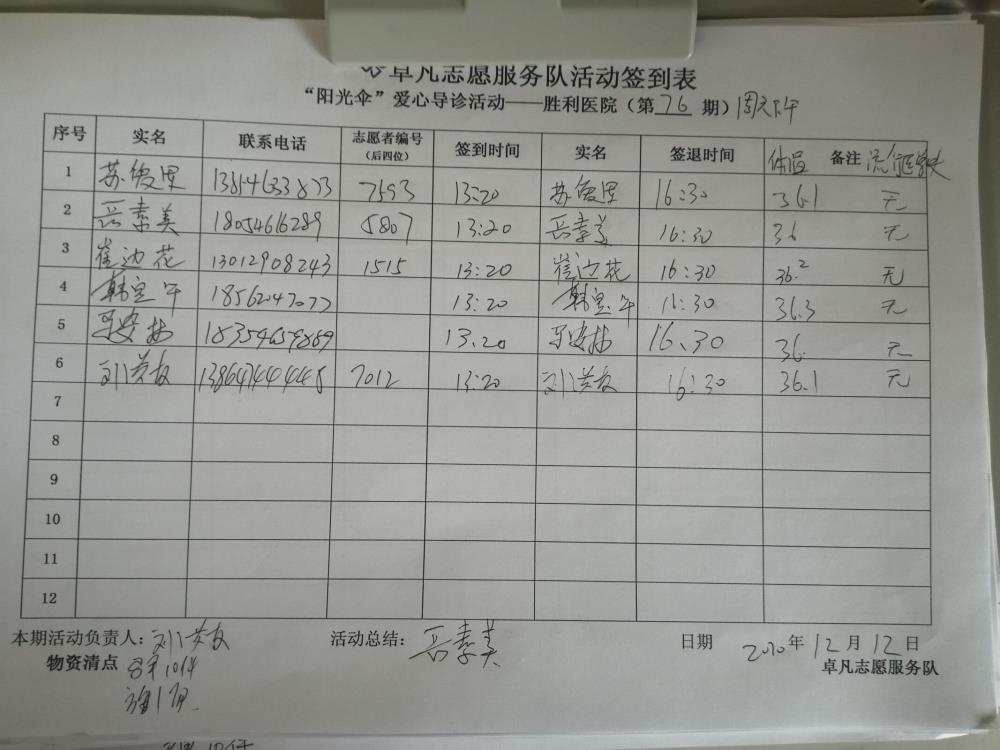 卓凡志愿服务队活动签到表
“阳光伞”爱心导诊活动——胜利医院（第 76 期）周六下午
序号 实名 联系电话 志愿者编号（后四位） 签到时间 实名 签退时间 体温 备注 流行医学史
1 苏俊里 7593 13:20 苏俊里 16:30 36.1 无
2 岳素美 18054616289 5807 13:20 岳素美 16:30 36 无
3 崔边花 13012908243 1515 13:20 崔边花 16:30 36.2 无
4 18562047077 13:20 16:30 36.3 无
5 18354659869 13.20 16.30 36. 无
6 刘洪友 13864744448 7012 13:20 刘洪友 16:30 36.1 无
7
8
9
10
11
12
本期活动负责人：刘洪友 活动总结：岳素美 日期 2020年12月12日
物资清点 卓凡志愿服务队